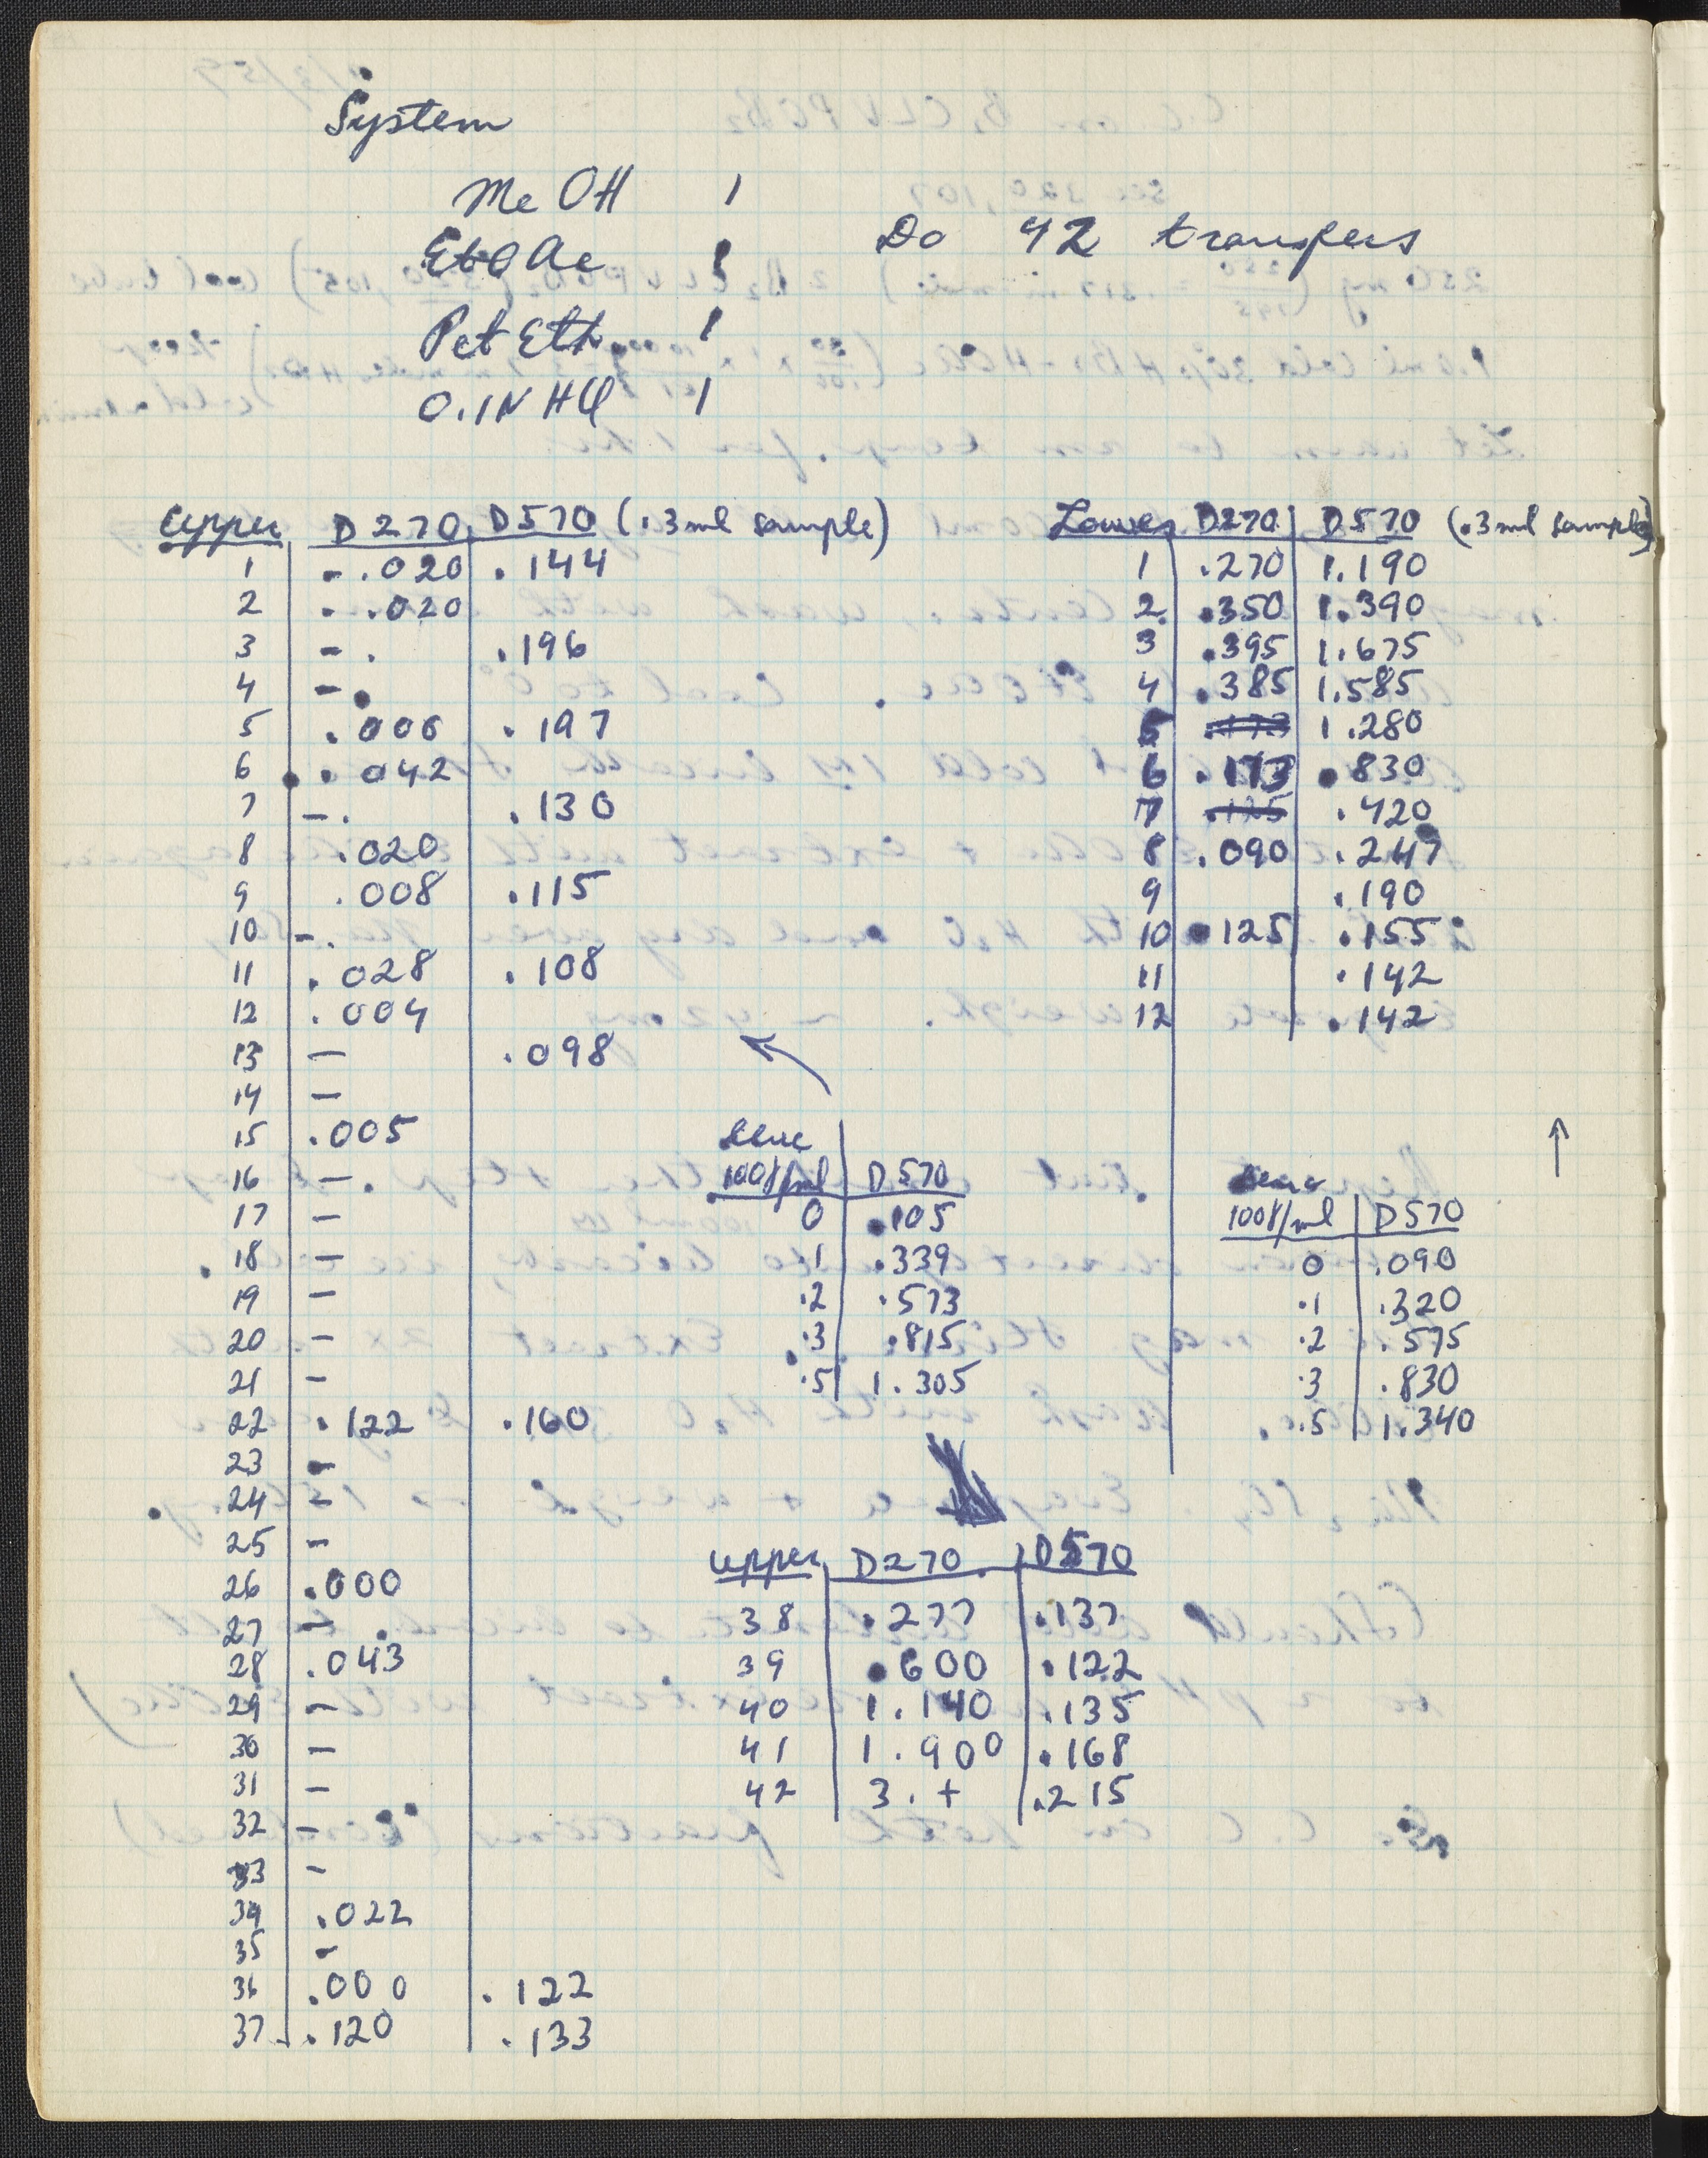 System
MeOH 1
EtOAc 1 Do 42 transfers
Pet Eth 1
0.1N HCl 1
Upper D270 D570 (.3ml sample)
1 -.020 .144
2 -.020
3 -. .196
4 -.
5 .006 .197
6 .042
7 -. .130
8 .020
9 .008 .115
10 -.
11 .028 .108
12 .004
13 — .098
14 —
15 .005
16 —
17 —
18 —
19 —
20 —
21 -
22 .122 .160
23 -
24 -
25 -
26 .000
27 —
28 .043
29 —
30 —
31 —
32 -
33 -
34 .022
35 -
36 .000 .122
37 .120 .133
Lower D270 D570 (.3ml sample)
1 .270 1.190
2 .350 1.390
3 .395 1.675
4 .385 1.585
5 .173 1.280
6 .173 .830
7 .125 .420
8 .090 .247
9 .190
10 .125 .155
11 .142
12 .142
↖
leuc
100γ/ml D570
0 .105
.1 .339
.2 .573
.3 .815
.5 1.305
↑
100γ/ml D570
0 .090
.1 .320
.2 .575
.3 .830
.5 1.340
upper D270 D570
38 .277 .137
39 .600 .122
40 1.140 .135
41 1.900 .168
42 3.+ .215